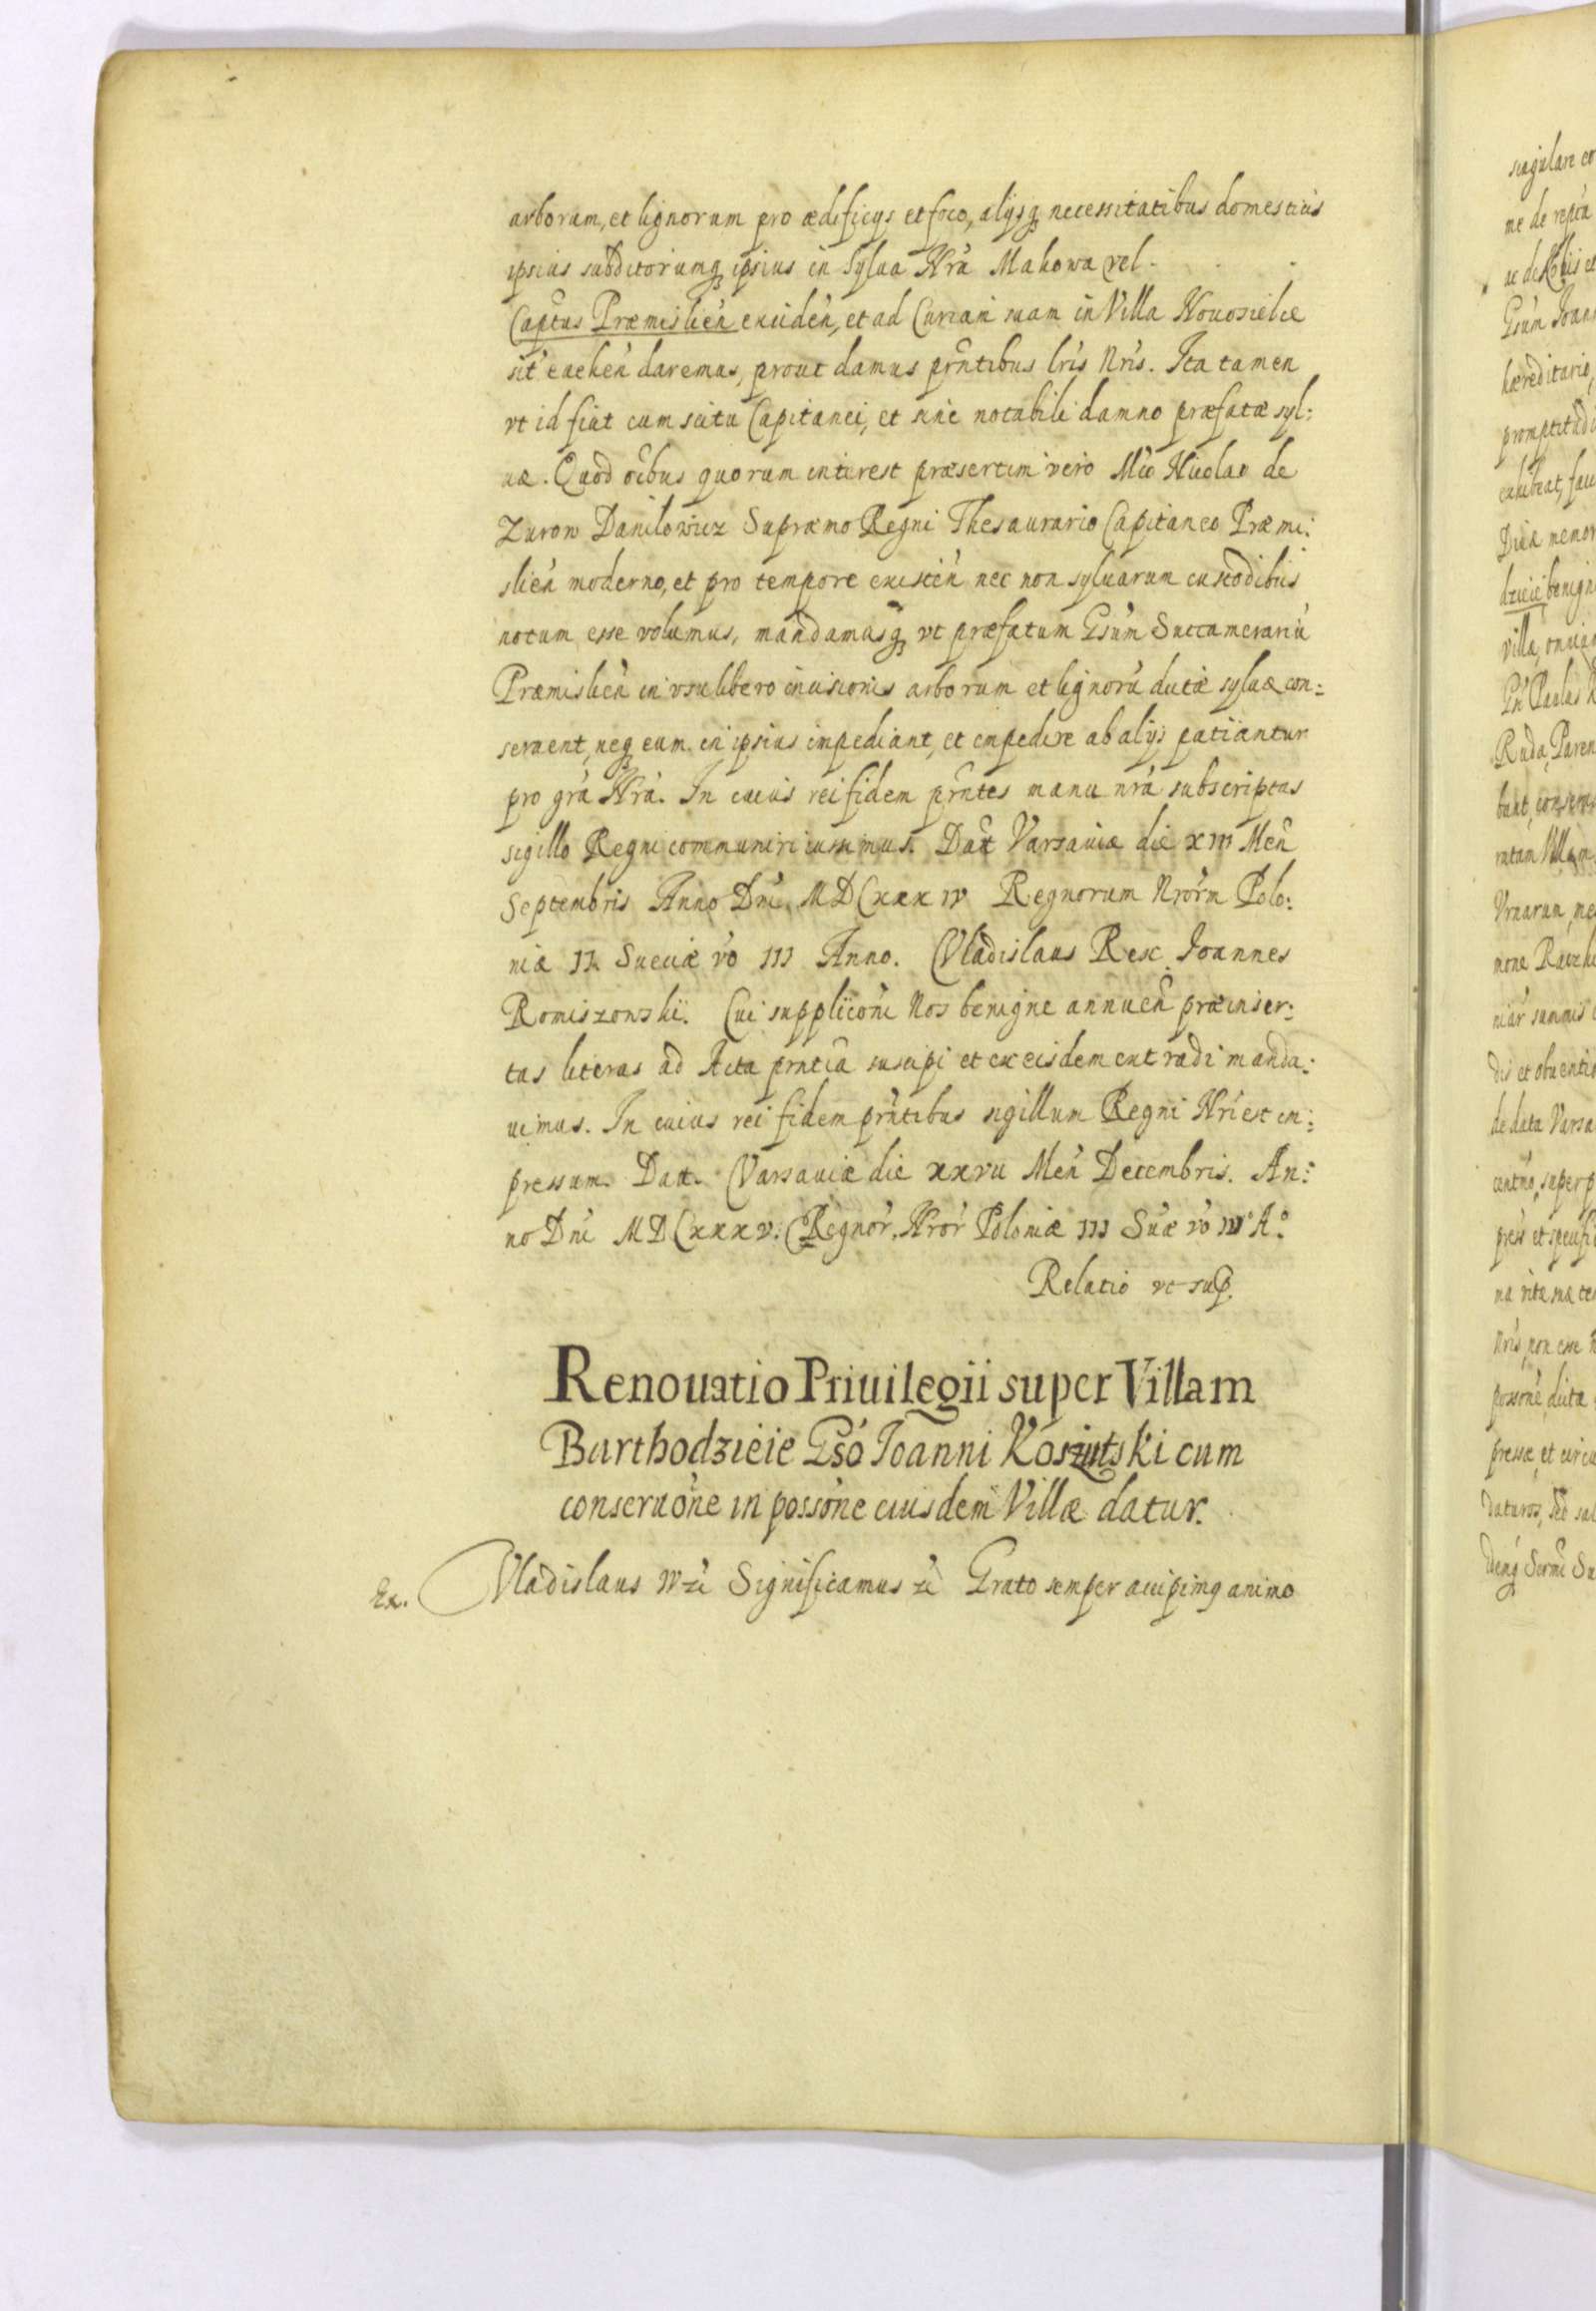 arborum, et lignorum pro ædificijs et foco, alijsq necessitatibus domesticis
ipsius subditorumq ipsius in sylua Nrã Makowa vel
Captus Præmislień excideń, et ad Curiam suam in Villa Nouosielce
sit eueheń daremus, prout damus pr̃ntibus lr̃is Nr̃is. Ita tamen
vt id fiat cum scitu Capitanei, et sine notabili damno præfatæ syl:
uæ. Quod oĩbus quorum interest præsertim vero Mco Nicolao de
Zurow Danilowicz Supræmo Regni Thesaurario Capitaneo Præmi:
slień moderno, et pro tempore existeń nec non syluarum custodibus
notum esse volumus, mandamusq vt præfatum Gsum Succamerariũ
Præmislień in vsu libero incisionis arborum et lignorũ dictæ syluæ con:
seruent, neq eum in ipsius impediant, et impedire ab alijs patiantur
pro grã Nrã. In cuius rei fidem pr̃ntes manu nrã subscriptas
sigillo Regni communiri iussimus. Datt Varsauiæ die XIII Meñ
Septembris Anno Dnĩ MDCxxxiv Regnorum Nror̃m Polo:
niæ II Sueciæ vo III Anno. Vladislaus Rex. Ioannes
Romiszowski. Cui supplicõni Nos benigne annueñ præinser:
tas literas ad Acta prntia suscipi et ex eisdem extradi manda:
uimus. In cuius rei fidem prñtibus sigillum Regni Nri est im:
pressum. Datt. Varsauiæ die xxvii Meñ Decembris. An:
no Dnĩ MDCxxxv. Regnor̃. Nror̃ Poloniæ III Suæ vo IV Ao
Relatio vt sup.
Renouatio Priuilegii super Villam
Barthodzieie Gsó Ioanni Koszutski cum
conseruõne in possõne eiusdem Villæ datur.
Ex. Vladislaus IV zc̃ Significamus zc̃ Grato semper accipimq animo
singulare
me de
hæreditario
promptitudi
exhibeat,
benign
villa,
Ruda, Paren
ratam Villam
mone
summis
de data Varsa
super
non esse
dictæ
pressæ, et
daturos, sed sal